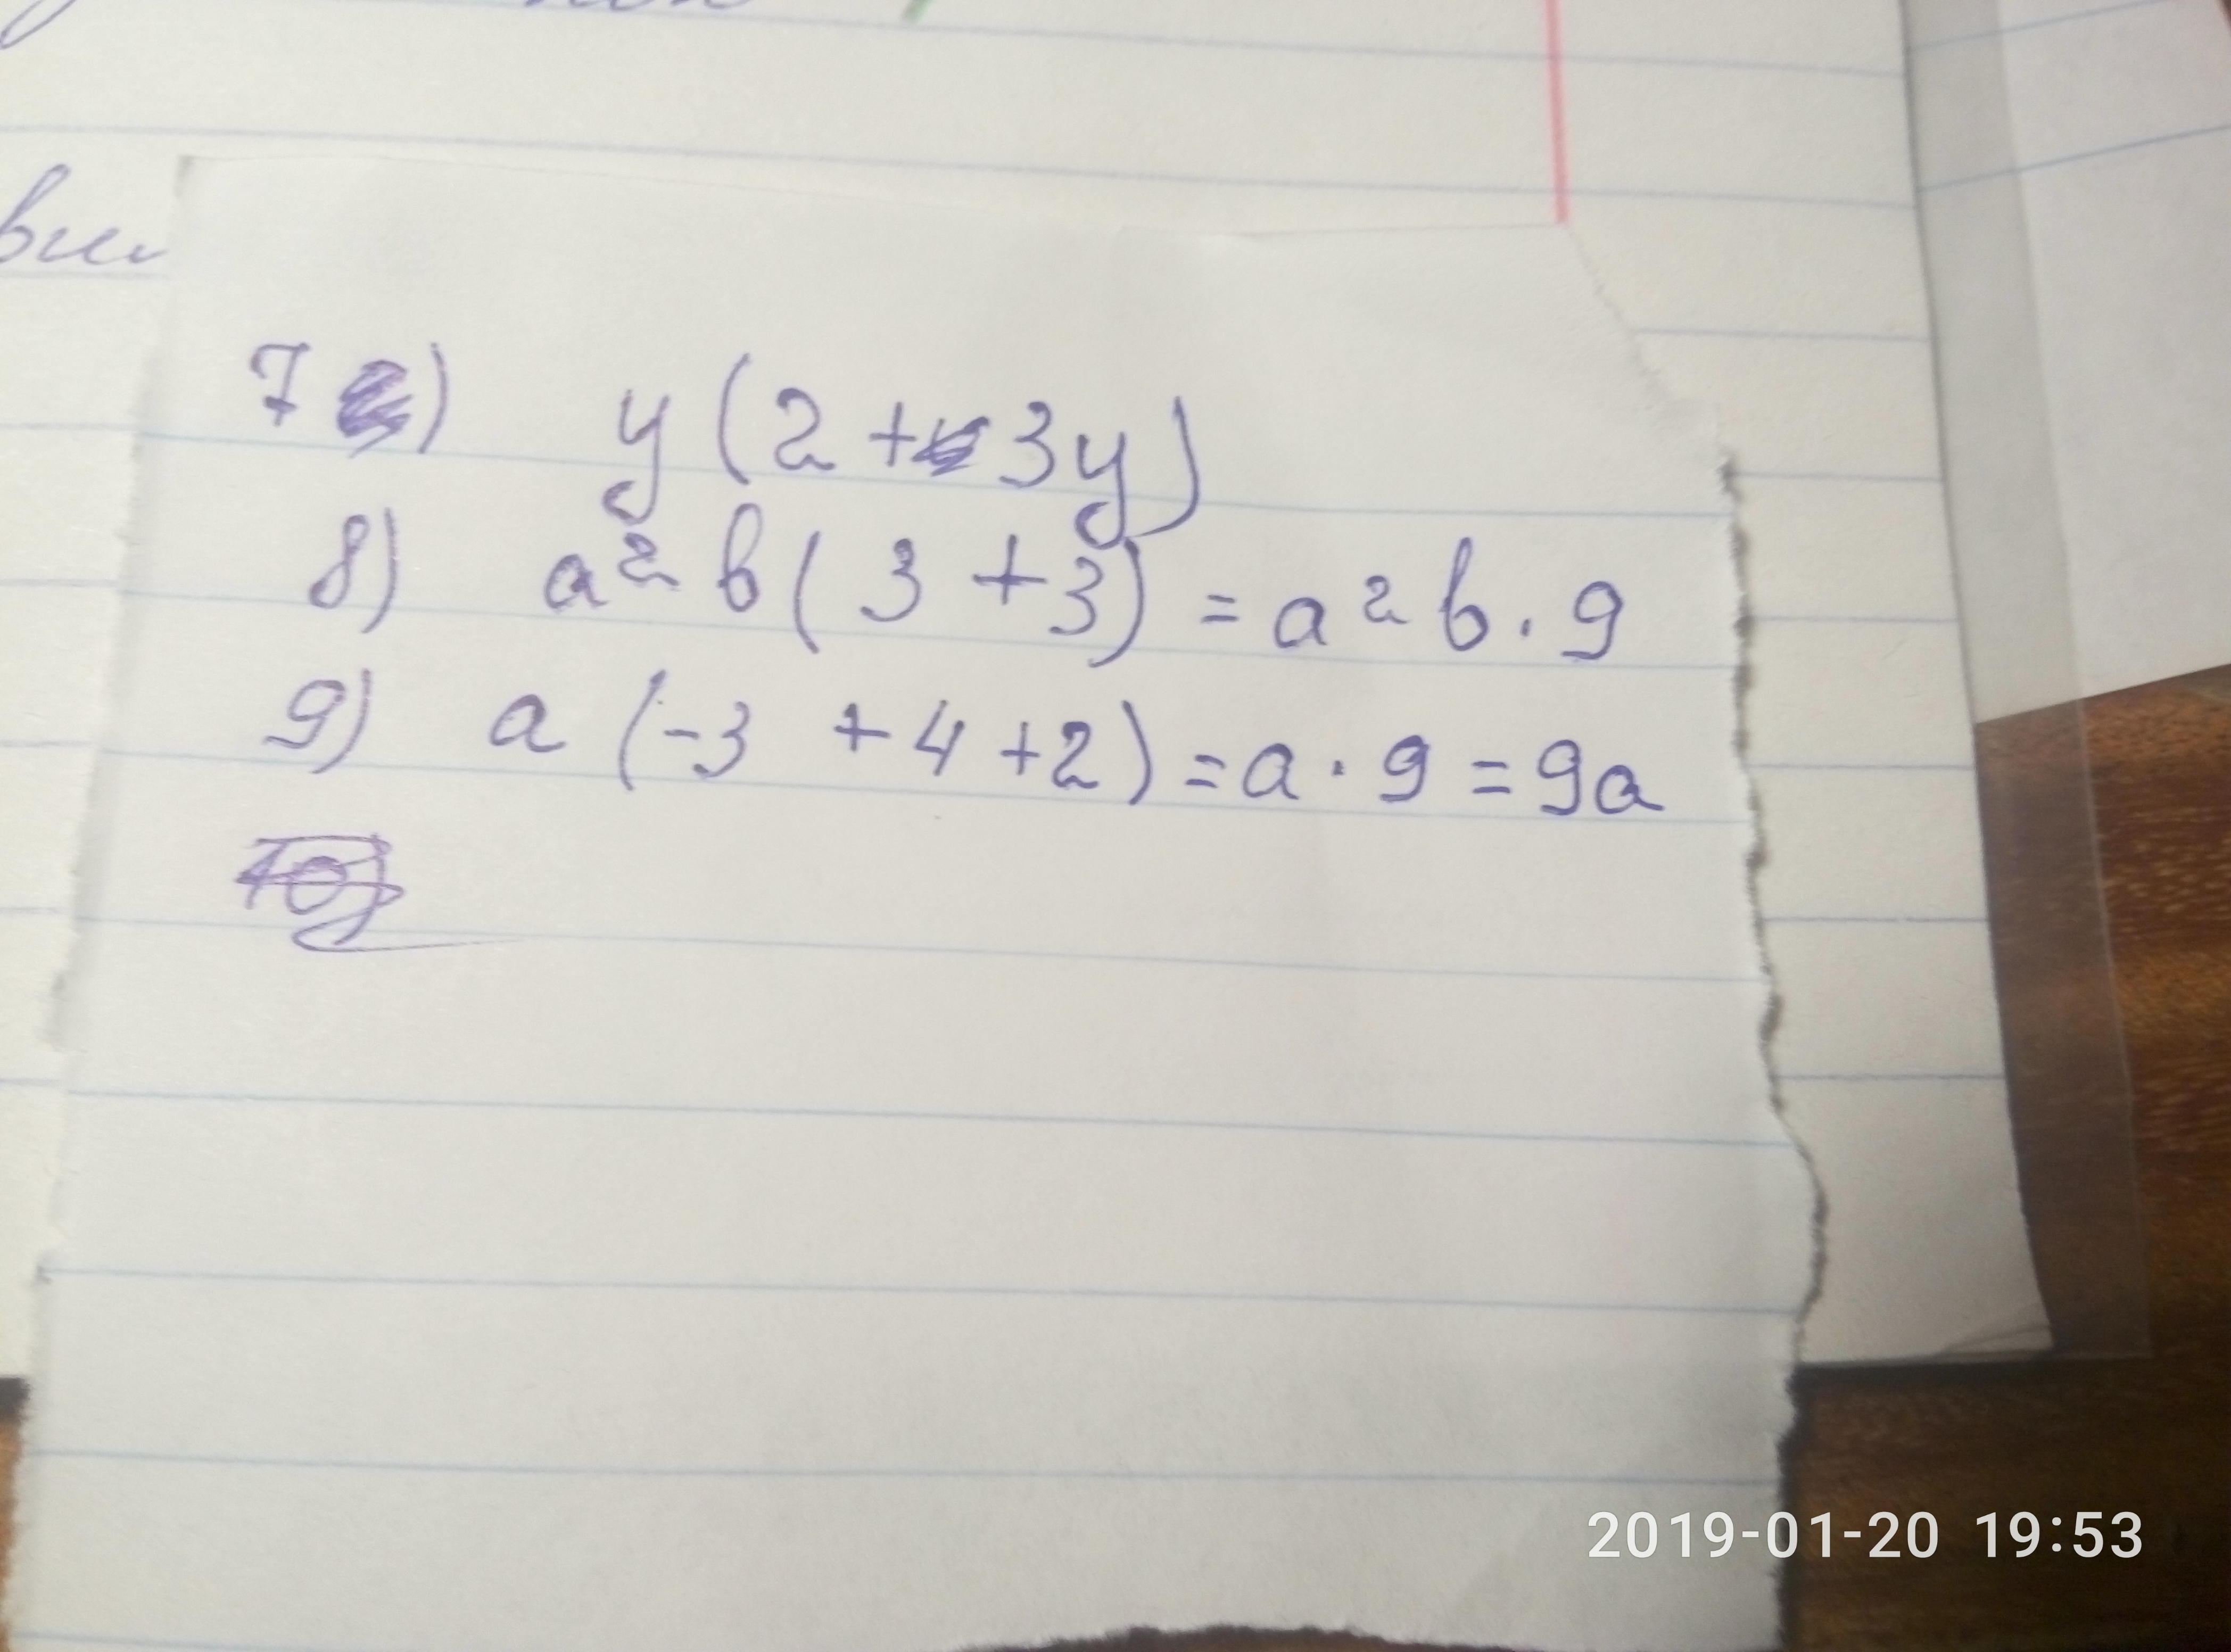 7) y(2+3y)
8) a²b(3+3)=a²b·9
9) a(-3+4+2)=a·9=9a
10)
2019-01-20 19:53